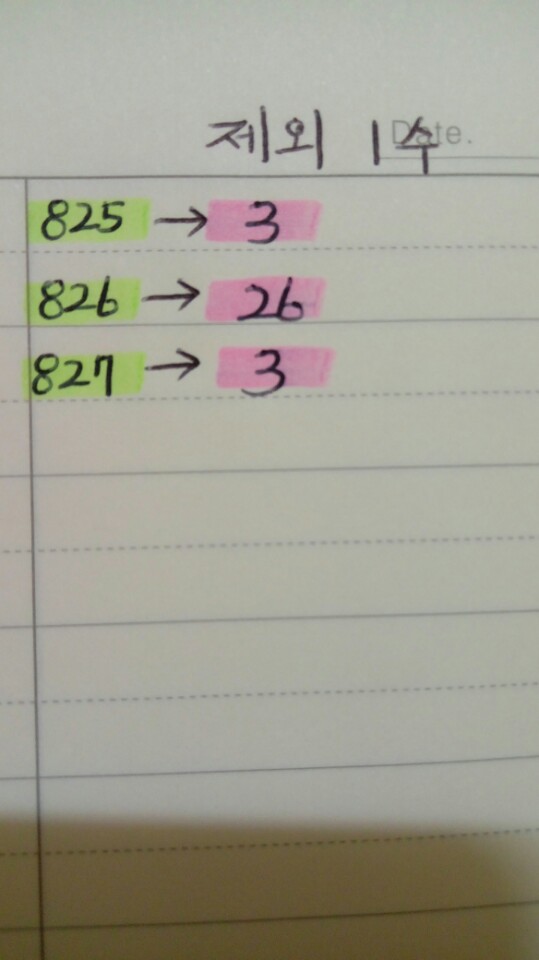 Date.
제외 1수
825 → 3
826 → 26
827 → 3